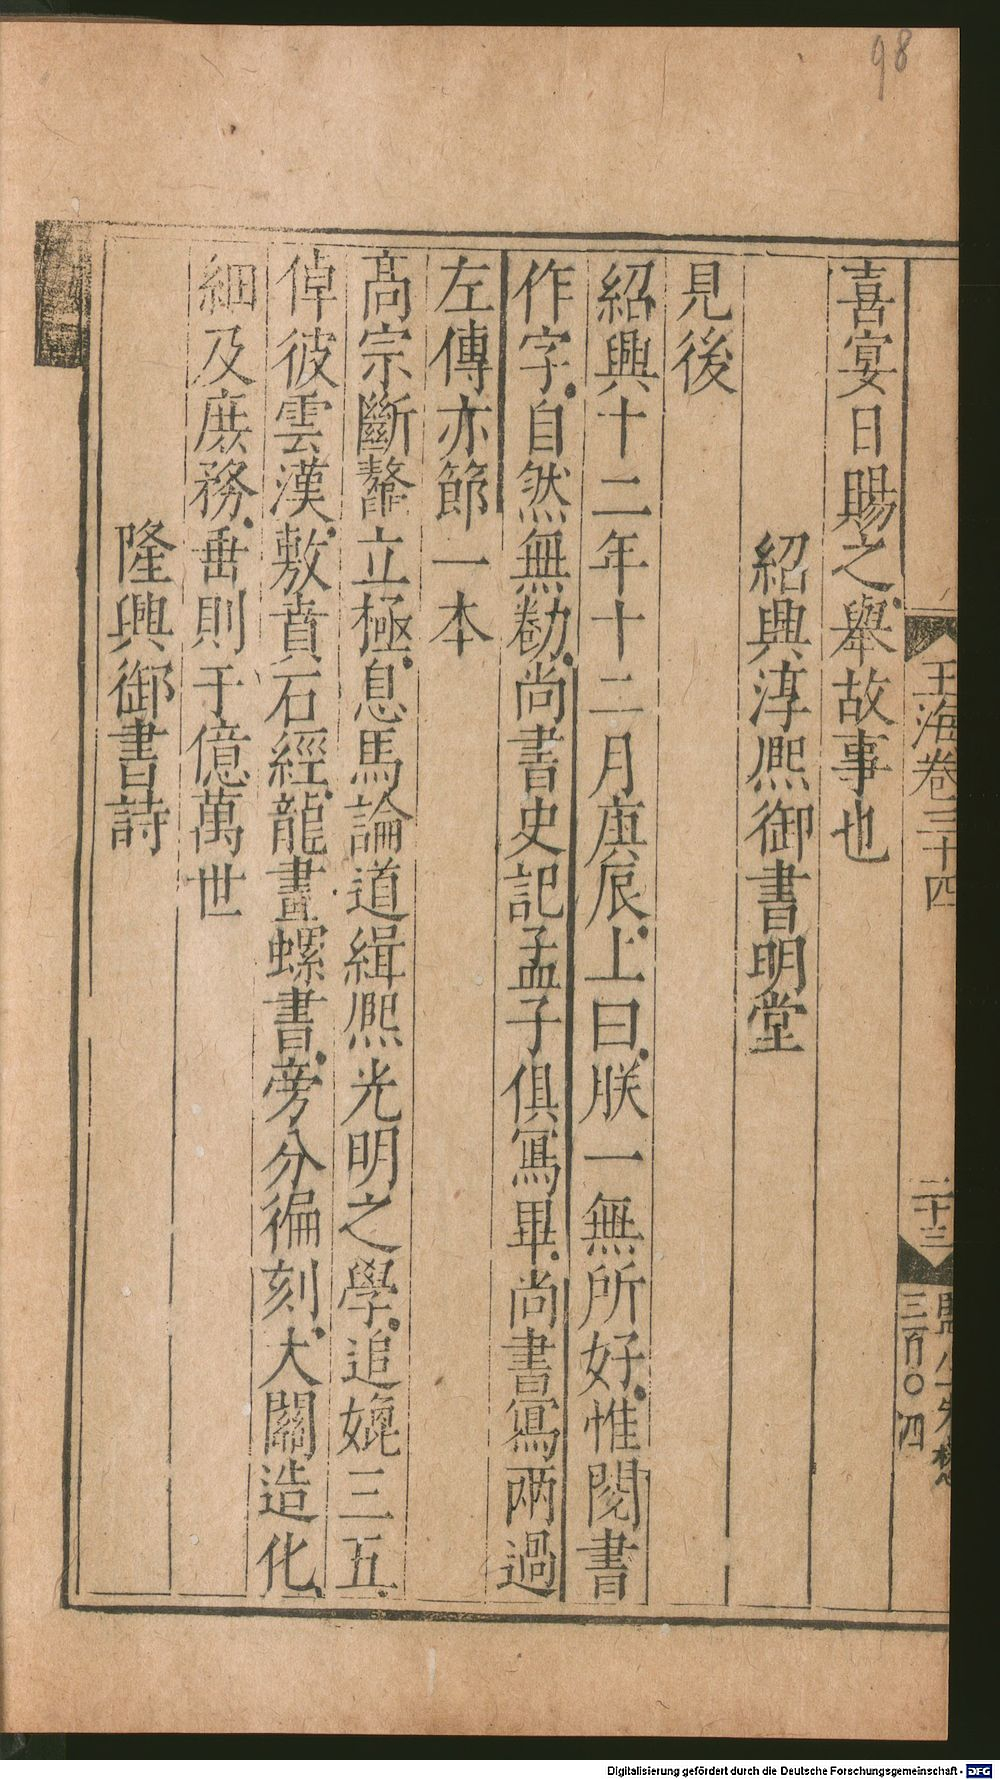 98
玉海卷三十四
二十三
三百〇四
喜宴日賜之舉故事也
紹興淳熈御書明堂
見後
紹興十二年十二月庚辰上曰朕一無所好惟閱書
作字自然無勌尚書史記孟子俱寫畢尚書寫兩過
左傳亦節一本
高宗斷鼇立極息馬論道緝熈光明之學追媲三五
倬彼雲漢敷賁石經龍畫螺書旁分徧刻大闡造化
細及庶務垂則于億萬世
隆興御書詩
Digitalisierung gefördert durch die Deutsche Forschungsgemeinschaft - DFG